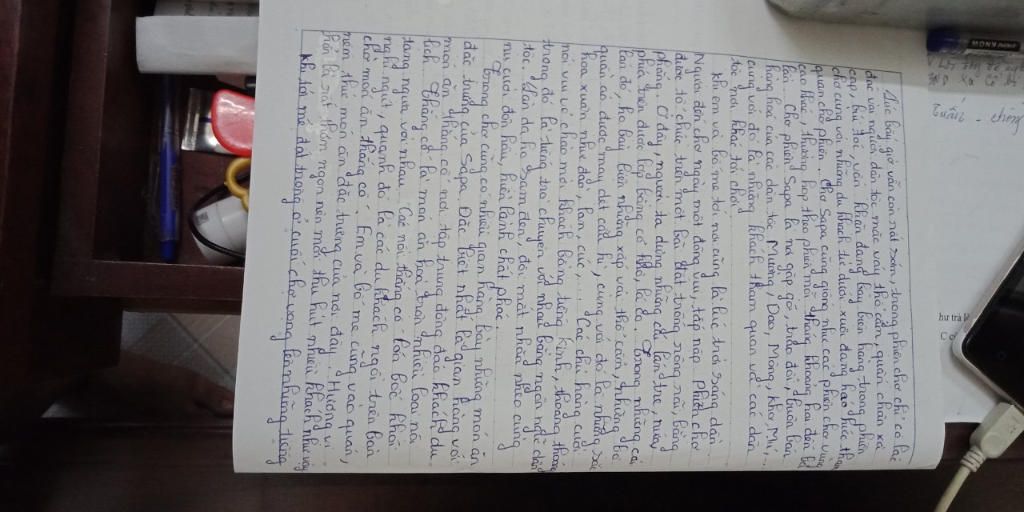 Lúc bấy giờ vẫn còn rất sớm, trong phiên chợ chỉ có lác
đác vài người dân tôi mặc váy thổ cẩm, quấn chân xà
cạp, búi tóc, vấn khăn đang bày biện hàng trong phiên
chợ cùng với những du khách từ dưới xuôi đang háo hức tham
quan chợ phiên. Chợ Sapa cũng giống như các phiên chợ vùng
cao khác, thường họp theo phiên mỗi tháng khoảng hai đến
lần. Chợ phiên Sapa là nơi gặp gỡ, trao đổi, buôn bán
hàng hoá của các dân tộc Mường, Dao, Mông, khơ, Mú,...
cùng với đó là những khách tham quan và các dân
từ nơi khác tới chơi.
Khi em và bố mẹ tới nơi cũng là lúc trời sáng dần.
Người đến chợ ngày một đông vui, tấp nập. Phiên chợ
được tổ chức trên một bãi đất trống rộng rãi, bằng
phẳng. Ở đây, người ta dựng những cái lán tre, nứa,
phía trên được lợp bằng cỏ khô, lá cọ. Trong những cái
lán đó, họ bày biện những xấp vải thổ cẩm, những bộ
quần áo được may dệt cầu kì, cùng với đó là những sắc
hoa xuân như đào, lan, cúc,... Các chị hàng cười
nói vui vẻ chào mời khách bằng tiếng kinh, thỉnh thoảng
trong đó là tiếng trò chuyện với nhau bằng ngôn ngữ dân
tộc. Làn da họ sạm đen, đôi mắt nhăn nheo cùng
nụ cười đôn hậu, hiền lành chất phác.
Trong chợ cũng có nhiều gian hàng bày những món ăn
đặc trưng của Sapa. Đặc biệt nhất là gian hàng với
món ăn thắng cố nơi tập trung đông đảo khách du
lịch. Thắng cố là món ăn hoà trộn nhiều loại nội
tạng ngựa với nhau. Các nồi thắng cố lớn bốc khói
nghi ngút, quanh đó là các du khách ngồi trên bàn
chờ món ăn thắng cố. Em và bố mẹ cũng vào quán,
nếm thử món ăn đặc trưng của nơi đây. Hương vị
rất thơm ngon nên mới thu hút nhiều khách như vậy
Khi tới mé đất trống ở cuối chợ, vang lên những tiếng